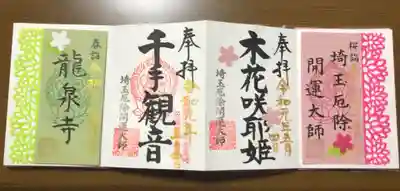 桜詣
埼玉厄除
開運大師
奉拝
令和元年五月
木花咲耶姫
埼玉厄除開運大師
奉拝
令和元年
千手観音
埼玉厄除開運大師
龍泉寺